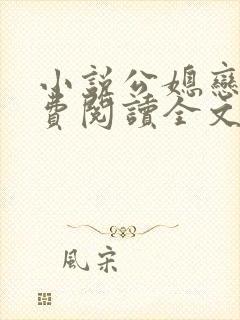 小說公媳戀
費閱讀全文
風宋